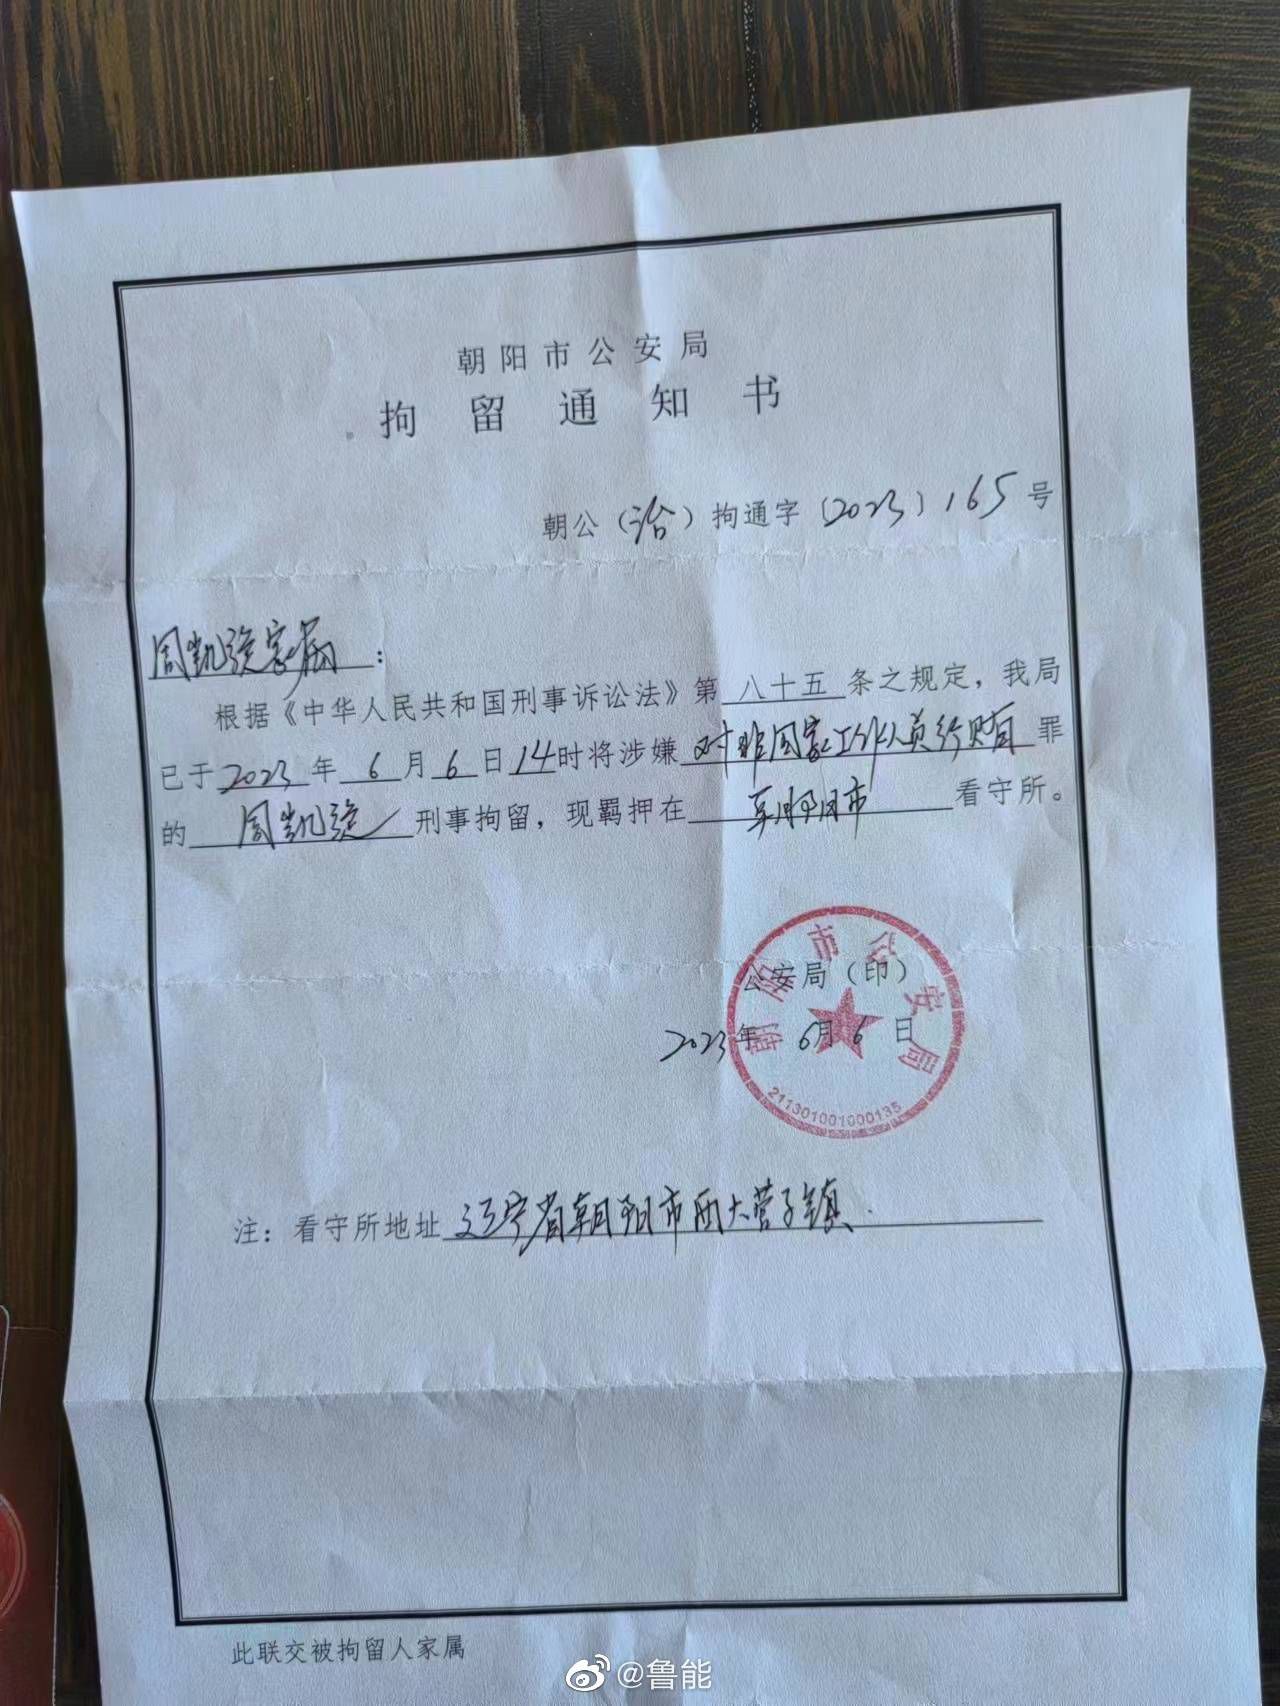 朝阳市公安局
拘留通知书
朝公（治）拘通字（2023）165号
周凯旋家属：
根据《中华人民共和国刑事诉讼法》第八十五条之规定，我局
已于2023年6月6日14时将涉嫌对非国家工作人员行贿罪
的周凯旋刑事拘留，现羁押在朝阳市看守所。
朝阳市公安局
公安局（印）
2023年6月6日
211301001000135
注：看守所地址辽宁省朝阳市西大营子镇.
此联交被拘留人家属
@鲁能